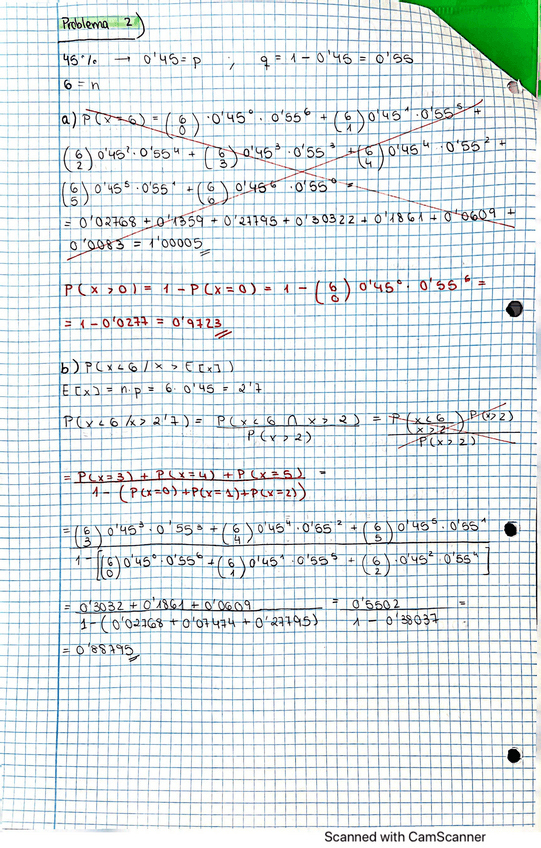 Problema 2)
45% → 0'45 = p ; q = 1 - 0'45 = 0'55
6 = n
a) P(x=6) = (6 0) · 0'45⁰ · 0'55⁶ + (6 1) 0'45¹ · 0'55⁵ +
(6 2) 0'45² · 0'55⁴ + (6 3) 0'45³ · 0'55³ + (6 4) 0'45⁴ · 0'55² +
(6 5) 0'45⁵ · 0'55¹ + (6 6) 0'45⁶ · 0'55⁰ =
= 0'02768 + 0'1359 + 0'27795 + 0'30322 + 0'1861 + 0'0609 +
0'0083 = 1'00005
P(x>0) = 1 - P(x=0) = 1 - (6 0) 0'45⁰ · 0'55⁶ =
= 1 - 0'0277 = 0'9723
b) P(x<6 / x > E[x])
E[x] = n·p = 6 · 0'45 = 2'7
P(x<6 / x > 2'7) = P(x<6 ∩ x > 2) / P(x>2) = P(x<6 / x>2) P(x>2) / P(x>2)
= P(x=3) + P(x=4) + P(x=5) / 1 - (P(x=0) + P(x=1) + P(x=2)) =
= (6 3) 0'45³ · 0'55³ + (6 4) 0'45⁴ · 0'55² + (6 5) 0'45⁵ · 0'55¹
1 - [(6 0) 0'45⁰ · 0'55⁶ + (6 1) 0'45¹ · 0'55⁵ + (6 2) · 0'45² · 0'55⁴]
= 0'3032 + 0'1861 + 0'0609 / 1 - (0'02768 + 0'07474 + 0'27795) = 0'5502 / 1 - 0'38037 =
= 0'88795
Scanned with CamScanner